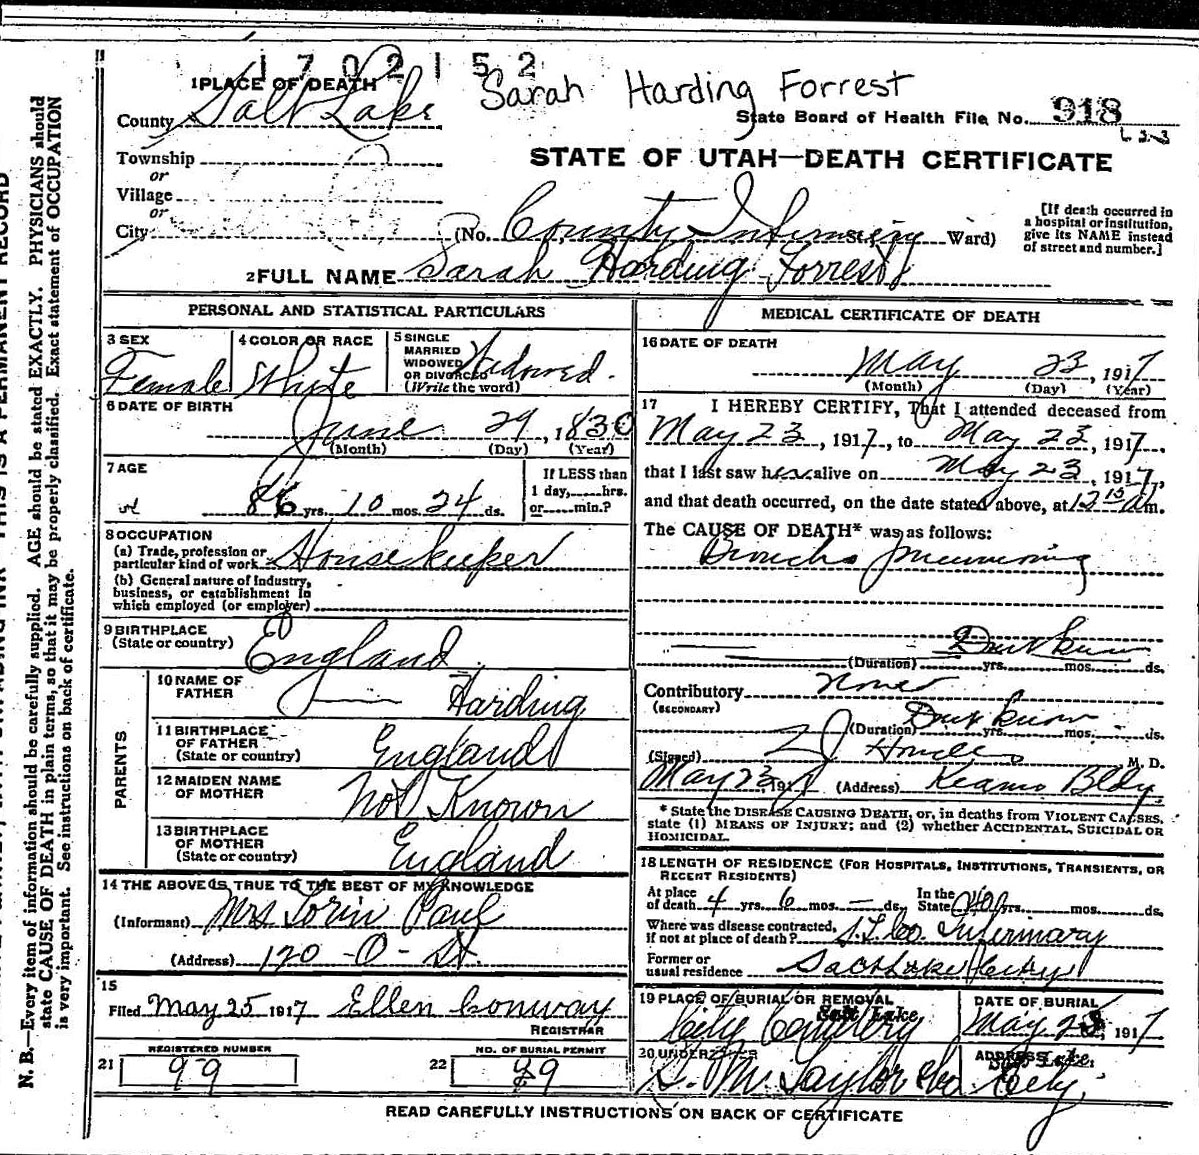 1702152
Sarah Harding Forrest
1 PLACE OF DEATH
County Salt Lake
State Board of Health File No. 918
Township
or
Village
or
City
STATE OF UTAH—DEATH CERTIFICATE
(No. County Infirmiry St., Ward)
[If death occurred in
a hospital or institution,
give its NAME instead
of street and number.]
2 FULL NAME Sarah Harding Forrest
PERSONAL AND STATISTICAL PARTICULARS
3 SEX
Female
4 COLOR OR RACE
White
5 SINGLE
MARRIED
WIDOWED
OR DIVORCED
(Write the word)
Widowed.
6 DATE OF BIRTH
June 29, 1830
(Month) (Day) (Year)
7 AGE
86 yrs. 10 mos. 24 ds.
If LESS than
1 day, hrs.
or min.?
8 OCCUPATION
(a) Trade, profession or
particular kind of work Housekeeper
(b) General nature of Industry,
business, or establishment in
which employed (or employer)
9 BIRTHPLACE
(State or country) England
PARENTS
10 NAME OF
FATHER Harding
11 BIRTHPLACE
OF FATHER
(State or country) England
12 MAIDEN NAME
OF MOTHER Not Known
13 BIRTHPLACE
OF MOTHER
(State or country) England
14 THE ABOVE IS TRUE TO THE BEST OF MY KNOWLEDGE
(Informant) Mrs Lorin Paul
(Address) 120 - O - St.
15
Filed May 25 1917 Ellen Conway
REGISTRAR
21 REGISTERED NUMBER
99
22 NO. OF BURIAL PERMIT
89
MEDICAL CERTIFICATE OF DEATH
16 DATE OF DEATH
May 23, 1917
(Month) (Day) (Year)
17 I HEREBY CERTIFY, That I attended deceased from
May 23, 1917, to May 23, 1917,
that I last saw her alive on May 23, 1917,
and that death occurred, on the date stated above, at 12 15 am.
The CAUSE OF DEATH* was as follows:
Broncho Pneumonia
(Duration) Dont know yrs. mos. ds.
Contributory None
(SECONDARY)
(Duration) Dont know yrs. mos. ds.
(Signed) M. D.
May 23 1917 (Address) Kearns Bldg.
* State the DISEASE CAUSING DEATH, or, in deaths from VIOLENT CAUSES,
state (1) MEANS OF INJURY; and (2) whether ACCIDENTAL, SUICIDAL OR
HOMICIDAL.
18 LENGTH OF RESIDENCE (FOR HOSPITALS, INSTITUTIONS, TRANSIENTS, OR
RECENT RESIDENTS)
At place
of death 4 yrs. 6 mos. — ds.
In the
State yrs. mos. ds.
Where was disease contracted,
if not at place of death? S.L. Co. Infermary
Former or
usual residence Salt Lake City
19 PLACE OF BURIAL OR REMOVAL
Salt Lake
City Cemetery
DATE OF BURIAL
May 28, 1917
20 UNDERTAKER
S. M. Taylor & Co
ADDRESS
Salt Lake
City.
READ CAREFULLY INSTRUCTIONS ON BACK OF CERTIFICATE
N. B.—Every item of information should be carefully supplied. AGE should be stated EXACTLY. PHYSICIANS should
state CAUSE OF DEATH in plain terms, so that it may be properly classified. Exact statement of OCCUPATION
is very important. See instructions on back of certificate.